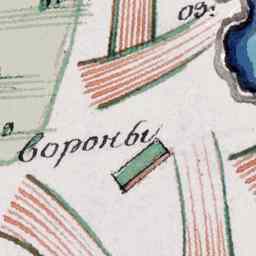 оз:
вороны